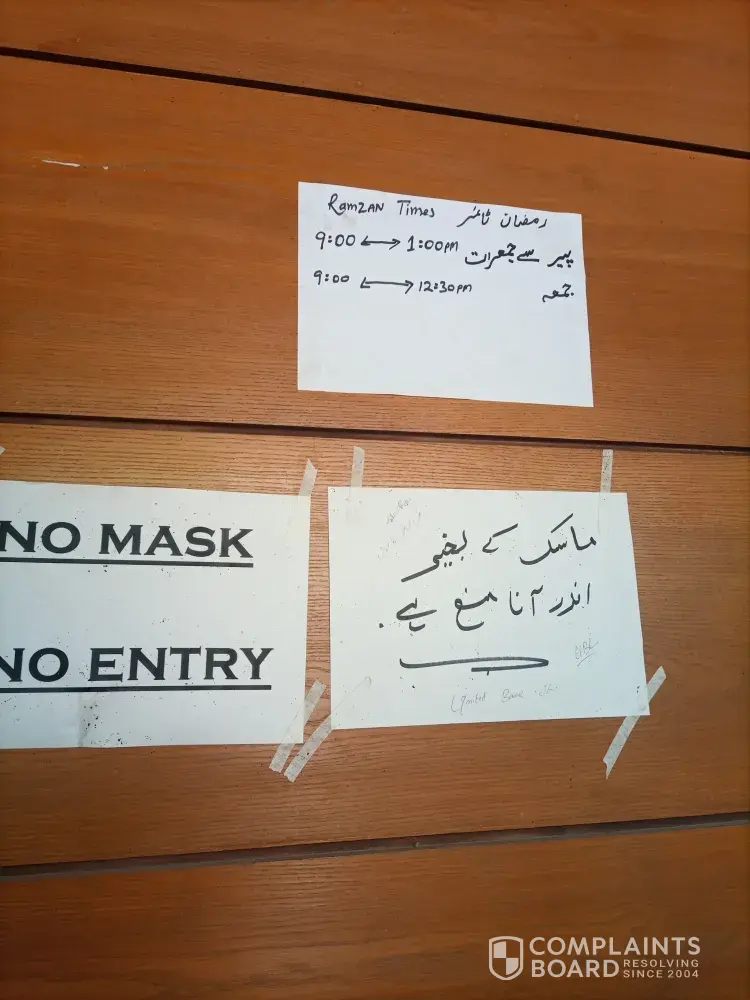 RamZAN Times رمضان ٹائمز
9:00 ↔ 1:00PM پیر سے جمعرات
9:00 ↔ 12:30PM جمعہ
NO MASK
NO ENTRY
ماسک کے بغیر
اندر آنا منع ہے.
Limited
COMPLAINTS
BOARD RESOLVING
SINCE 2004